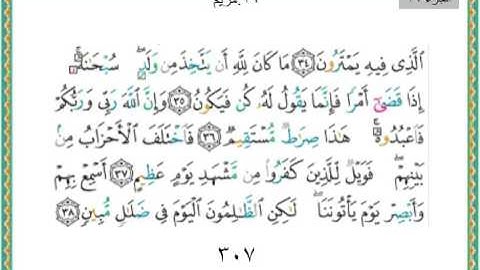 ١٩ . مريم
ٱلَّذِى فِيهِ يَمْتَرُونَ ﴿٣٤﴾ مَا كَانَ لِلَّهِ أَن يَتَّخِذَ مِن وَلَدٍۖ سُبْحَٰنَهُۥٓۚ
إِذَا قَضَىٰٓ أَمْرًا فَإِنَّمَا يَقُولُ لَهُۥ كُن فَيَكُونُ ﴿٣٥﴾ وَإِنَّ ٱللَّهَ رَبِّى وَرَبُّكُمْ
فَٱعْبُدُوهُۚ هَٰذَا صِرَٰطٌ مُّسْتَقِيمٌ ﴿٣٦﴾ فَٱخْتَلَفَ ٱلْأَحْزَابُ مِنۢ
بَيْنِهِمْۖ فَوَيْلٌ لِّلَّذِينَ كَفَرُوا۟ مِن مَّشْهَدِ يَوْمٍ عَظِيمٍ ﴿٣٧﴾ أَسْمِعْ بِهِمْ
وَأَبْصِرْ يَوْمَ يَأْتُونَنَاۖ لَٰكِنِ ٱلظَّٰلِمُونَ ٱلْيَوْمَ فِى ضَلَٰلٍ مُّبِينٍ ﴿٣٨﴾
٣٠٧